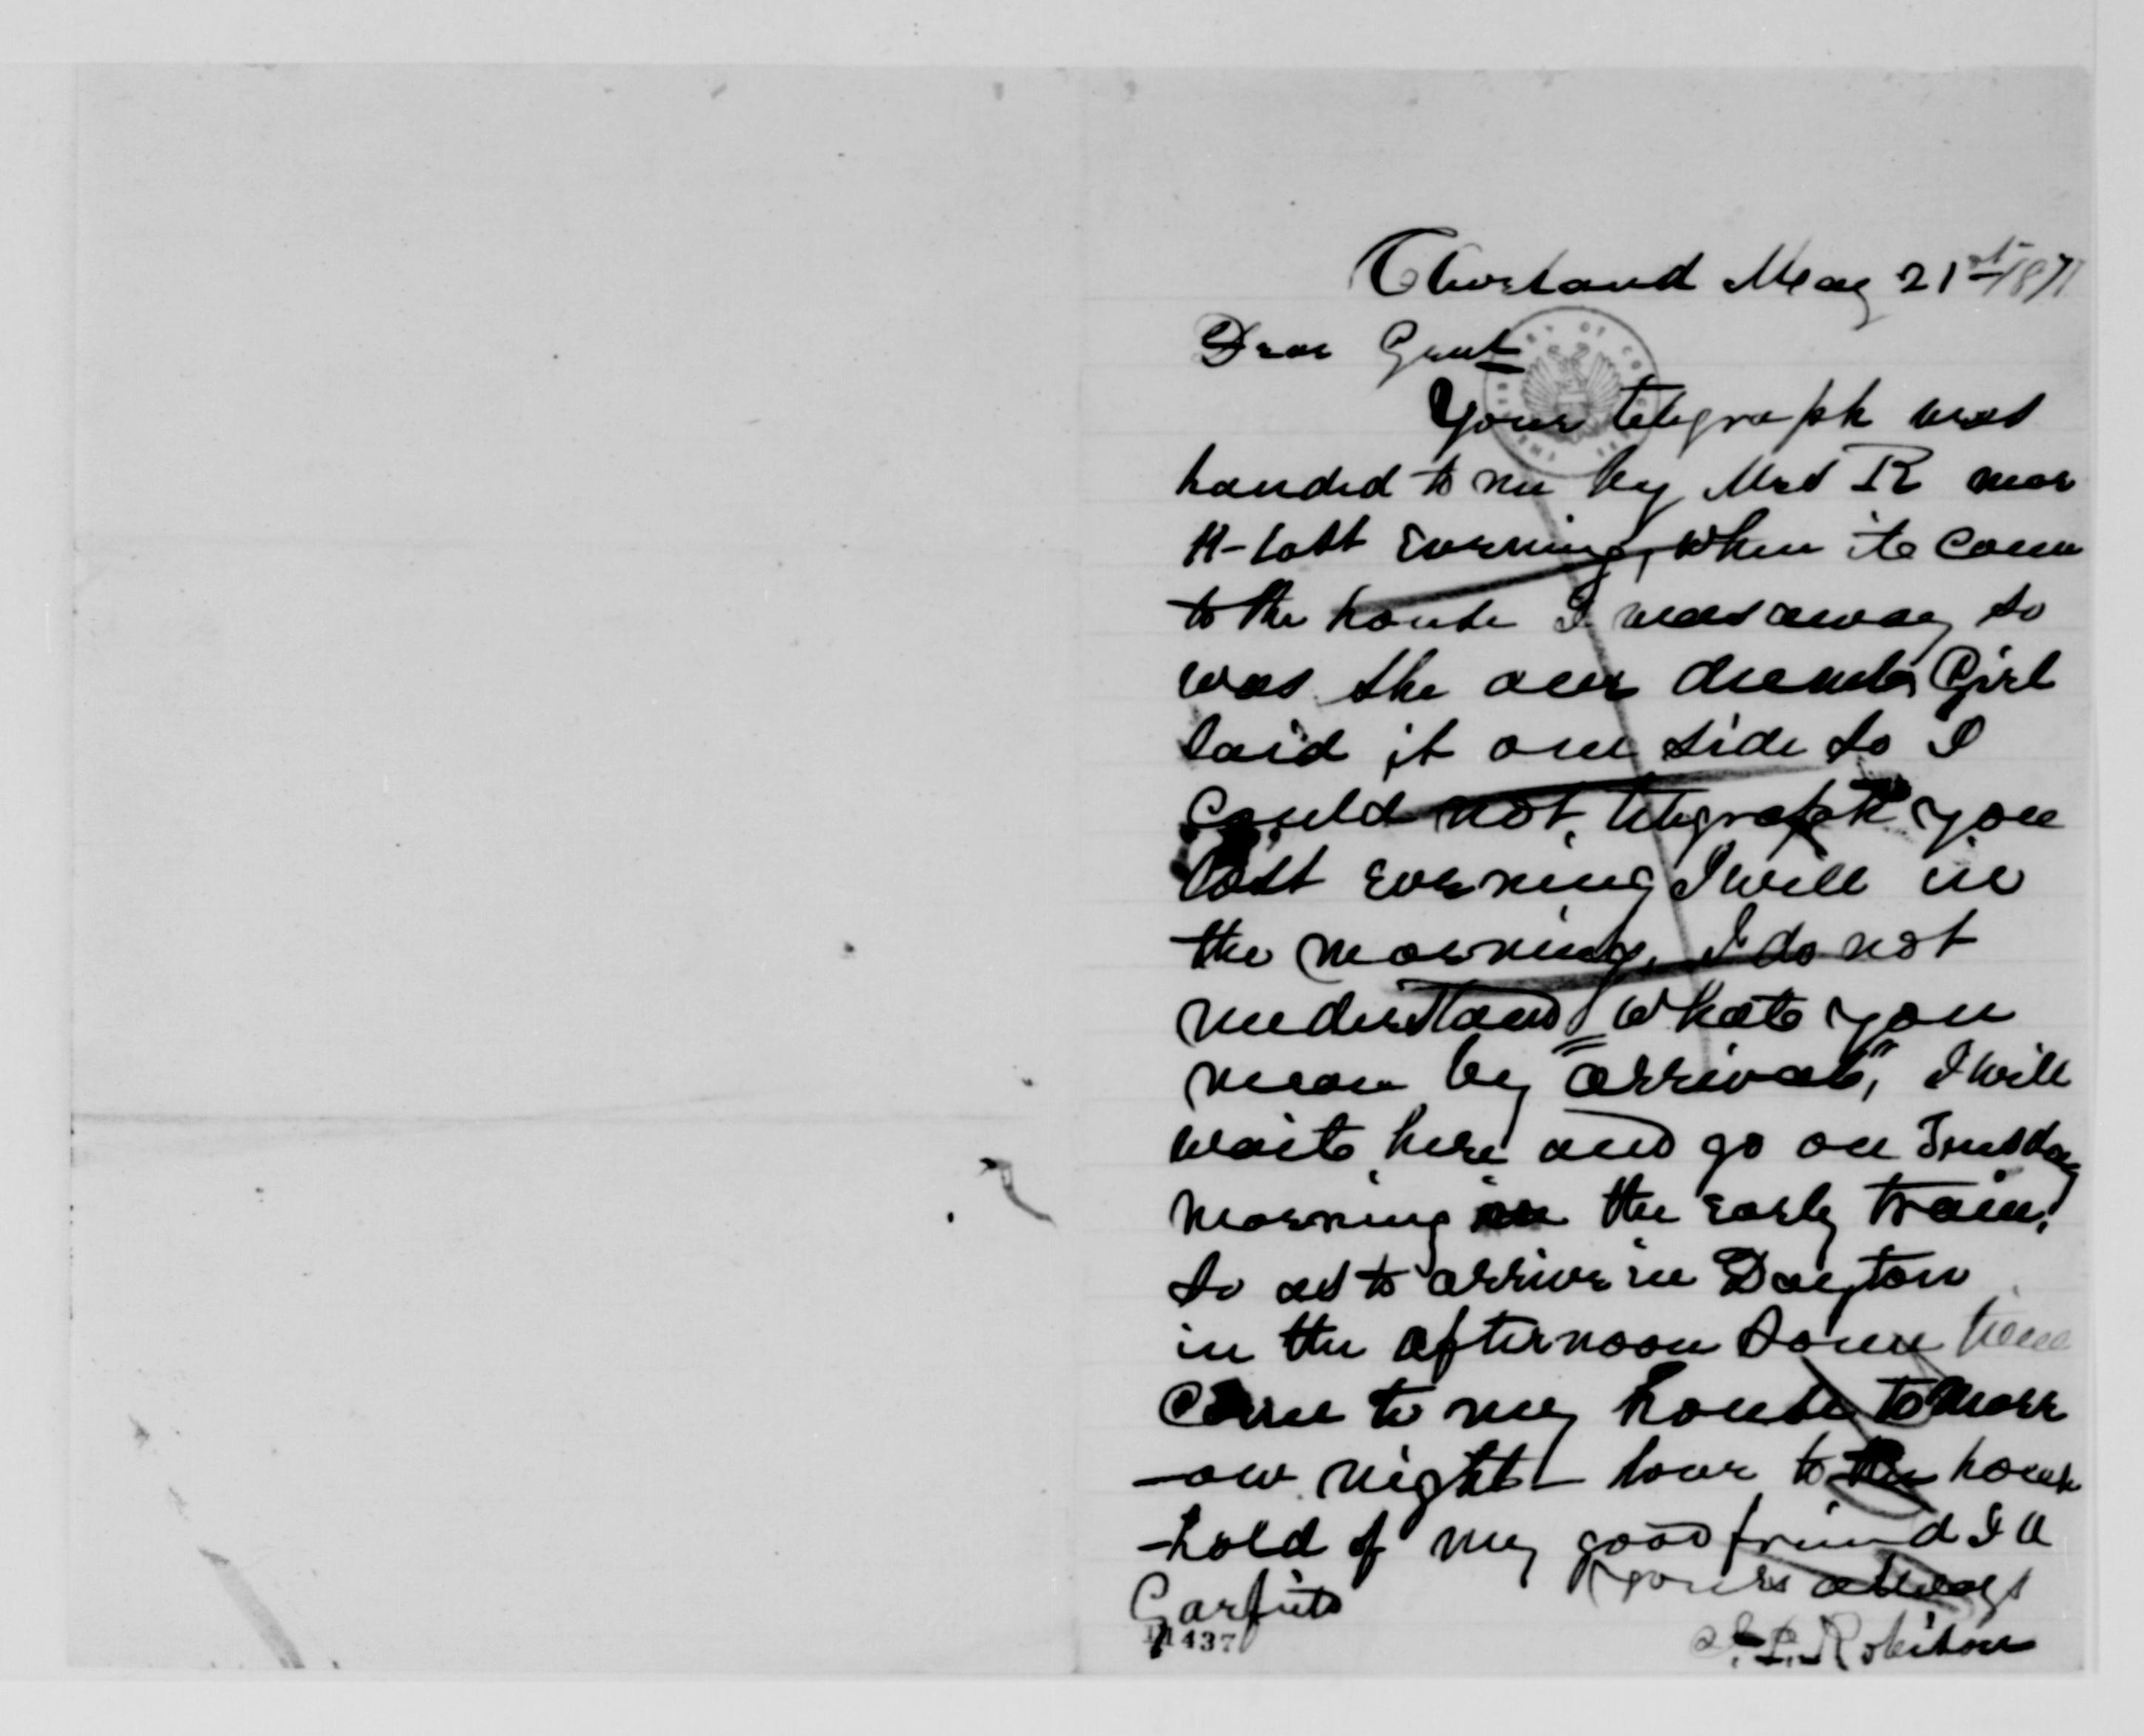 Cleveland May 21st 1871
Dear Genl
Your telegraph was
handed to me by Mrs R near
11- last evening, when it come
to the house I was away so
was she our Girl
laid it one side so I
could not telegraph you
last evening I will in
the morning. I do not
understand what you
mean by "arrival", I will
wait here and go on Tuesday
morning the early train,
so as to arrive in Dayton
in the afternoon some time
Come to my house tomorr
-ow night - love to the house
-hold of my good friend J A
Garfield
Yours always
Robison
11437